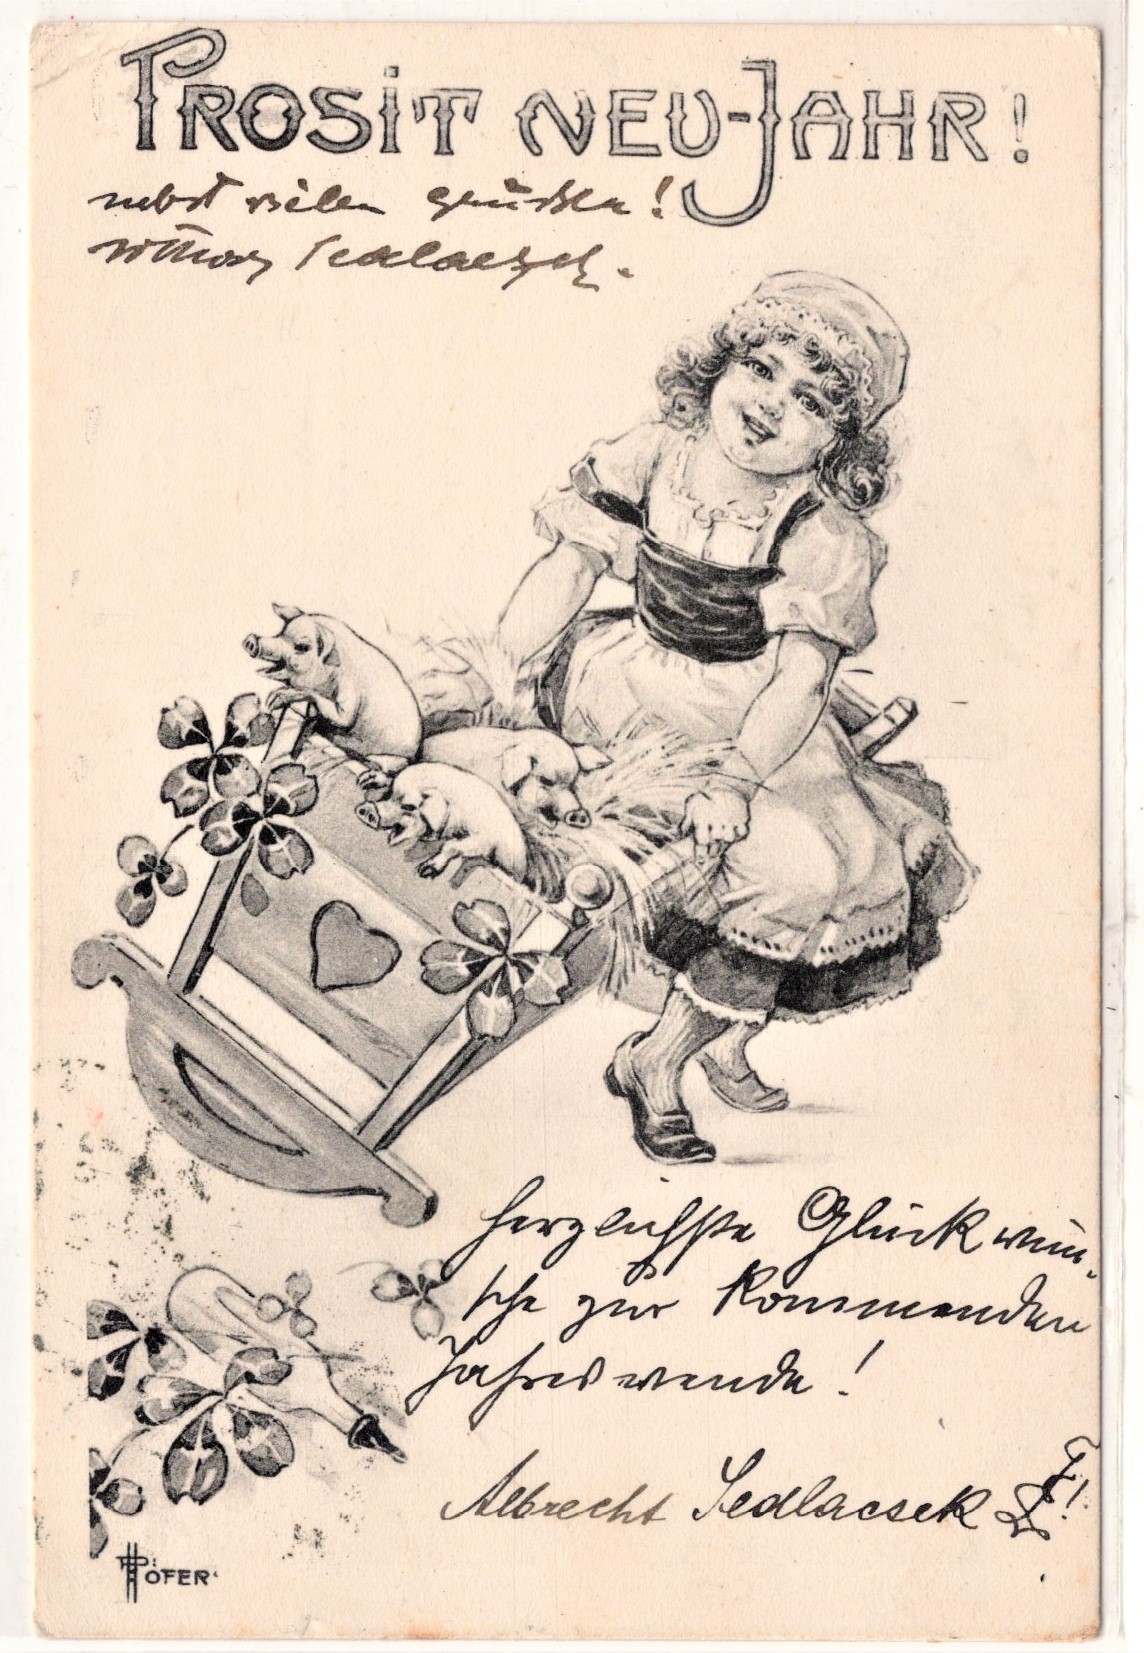 PROSIT NEU-JAHR!
nebst vielen Grüßen!
Sedlacsek.
Herzlichste Glückwün-
sche zur kommenden
Jahreswende!
Albrecht Sedlacsek
HÖFER